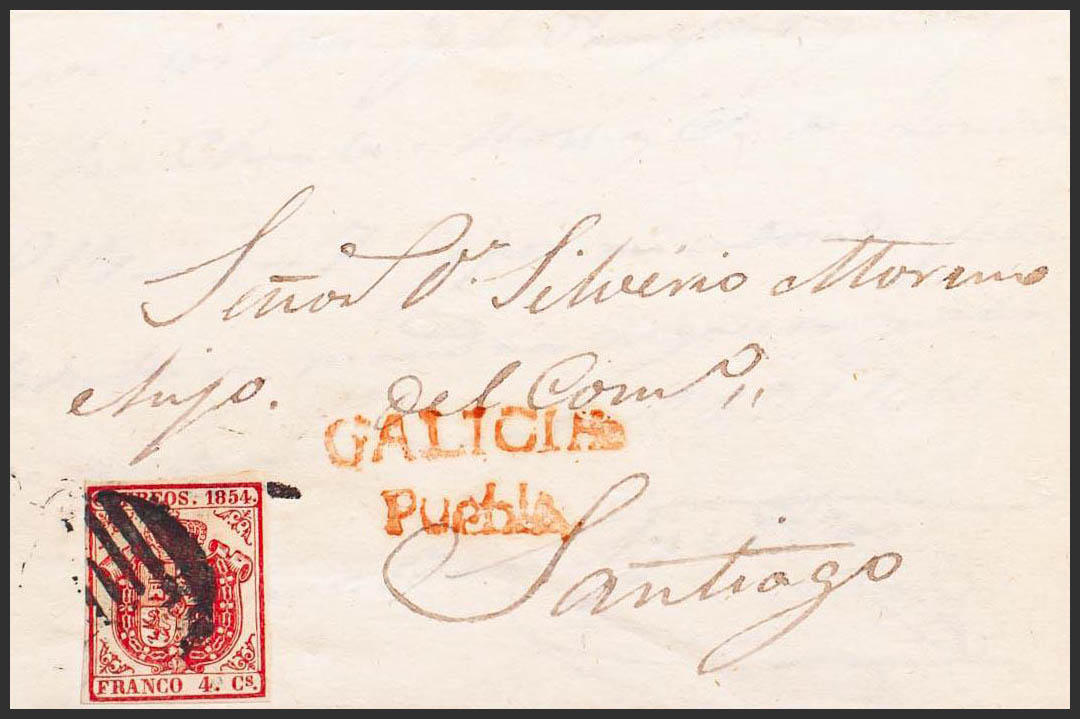 Señor Dn Silverio Moreno
del Como,,
GALICIA
Puebla
Santiago
CORREOS. 1854.
FRANCO 4. Cs.